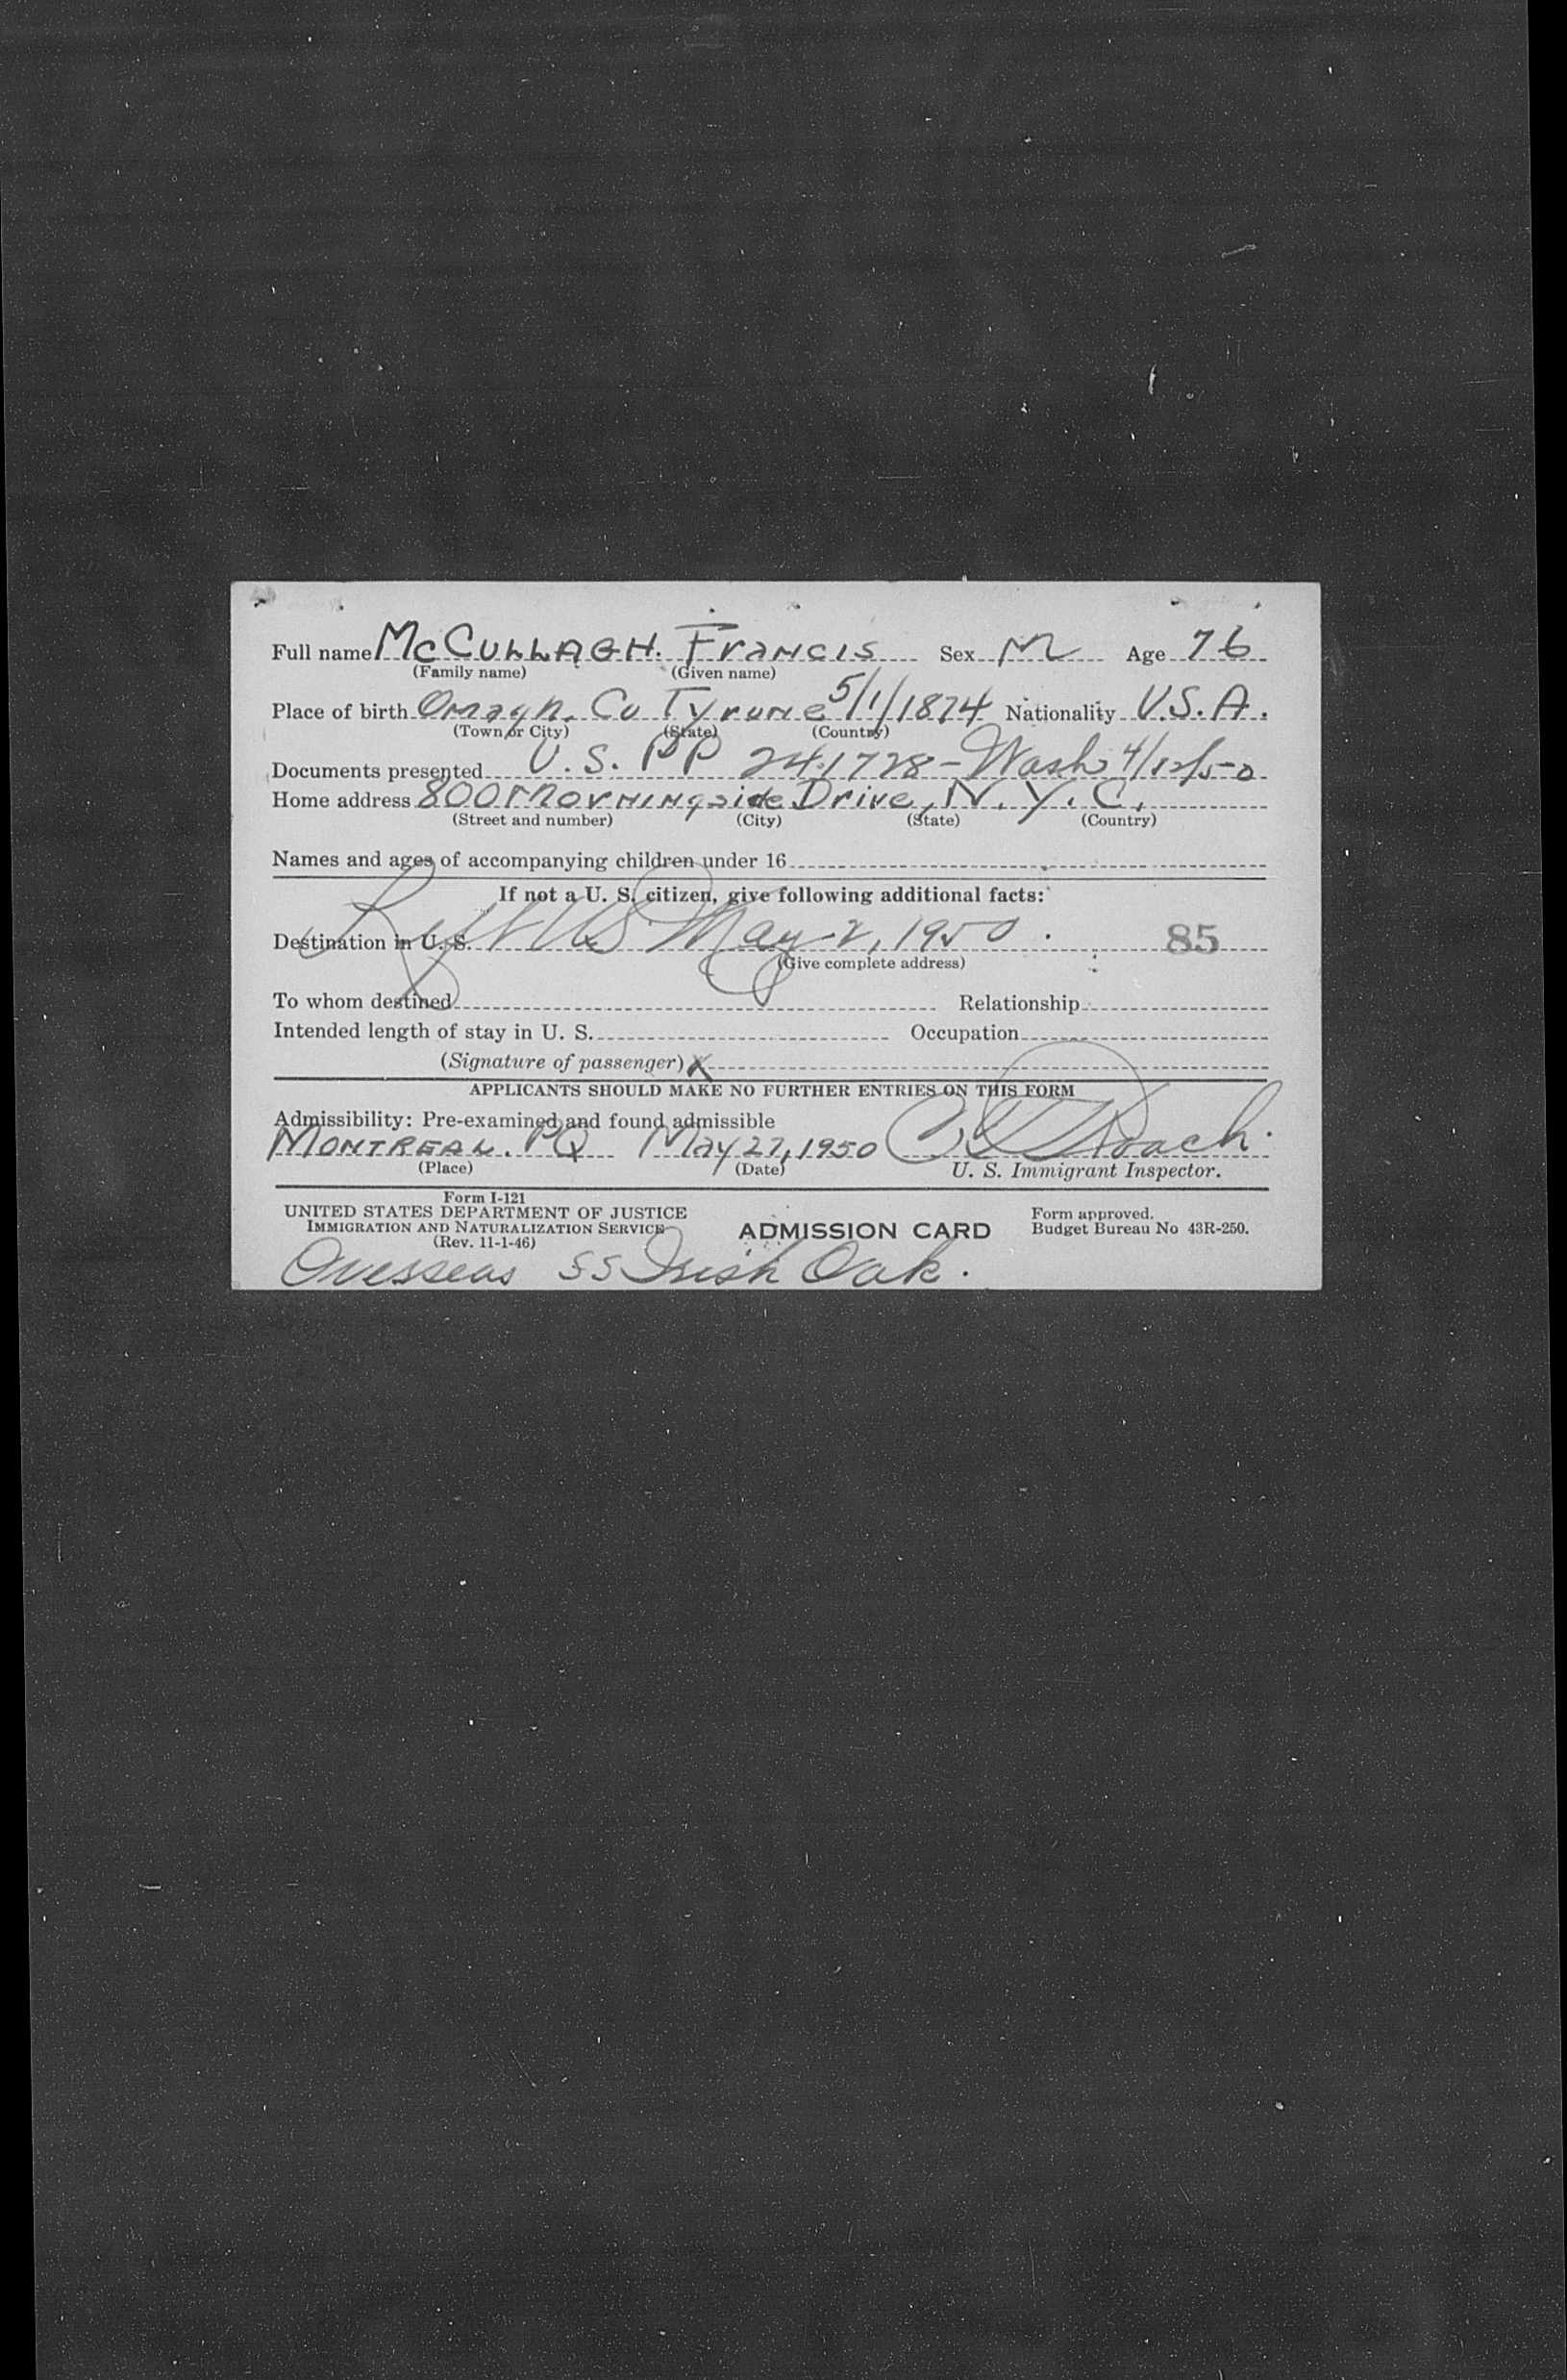 Full name McCULLAGH. Francis Sex M Age 76
(Family name) (Given name)
Place of birth Omagh. Co Tyrone 5/1/1874 Nationality U.S.A.
(Town or City) (State) (Country)
Documents presented U.S. PP 241728 - Wash 4/12/50
Home address 800 Morningside Drive, N.Y.C.
(Street and number) (City) (State) (Country)
Names and ages of accompanying children under 16
If not a U. S. citizen, give following additional facts:
Destination in U. S. Left US May 2, 1950. 85
(Give complete address)
To whom destined Relationship
Intended length of stay in U. S. Occupation
(Signature of passenger) X
APPLICANTS SHOULD MAKE NO FURTHER ENTRIES ON THIS FORM
Admissibility: Pre-examined and found admissible
MONTREAL. PQ May 27, 1950 Roach.
(Place) (Date) U. S. Immigrant Inspector.
Form I-121
UNITED STATES DEPARTMENT OF JUSTICE Form approved.
IMMIGRATION AND NATURALIZATION SERVICE ADMISSION CARD Budget Bureau No 43R-250.
(Rev. 11-1-46)
Overseas SS Irish Oak.